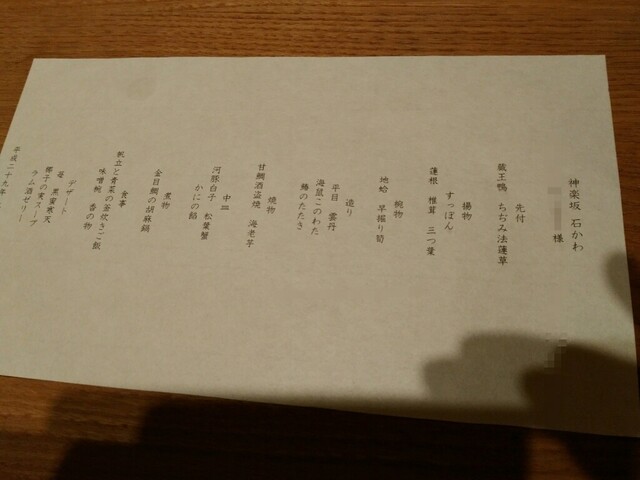 神楽坂 石かわ
様
先付
蔵王鴨 ちぢみ法蓮草
揚物
すっぽん
蓮根 椎茸 三つ葉
椀物
地蛤 早掘り筍
造り
平目 雲丹
海鼠このわた
鰆のたたき
焼物
甘鯛酒盗焼 海老芋
中皿
河豚白子 松葉蟹
かにの餡
煮物
金目鯛の胡麻鍋
食事
帆立と青菜の釜炊きご飯
味噌椀 香の物
デザート
苺 黒蜜寒天
椰子の実スープ
ラム酒ゼリー
平成二十九年